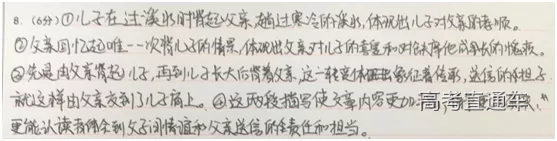 8.(6分)①儿子在过溪水时背起父亲,趟过寒冷的溪水,体现出儿子对父亲的孝顺。
②父亲回忆起唯一一次背儿子的情景,体现出父亲对儿子的喜爱和对缺席他成长的愧疚。
③先是由父亲背起儿子,再到儿子长大后背着父亲,这一转变体现出象征着传承,送信的担子
就这样由父亲交到了儿子肩上。④这两段描写使文章内容更加
更能让读者体会到父子间情谊和父亲送信的责任和担当。
高考直通车